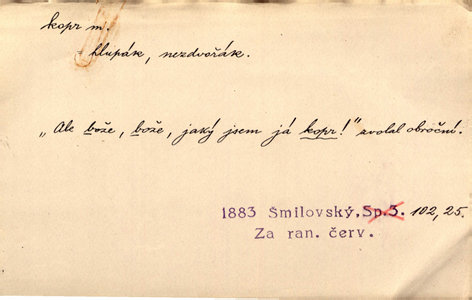 kopr m.
- hlupák, nezdvořák.
„Ale bože, bože, jaký jsem já kopr!" zvolal obroční.
1883 Šmilovský, Sp.3. 102, 25.
Za ran. červ.